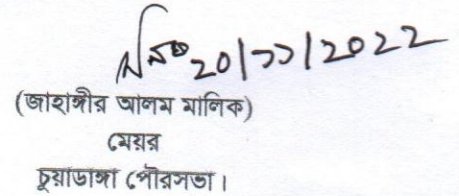 20/11/2022
(জাহাঙ্গীর আলম মালিক)
মেয়র
চুয়াডাঙ্গা পৌরসভা।